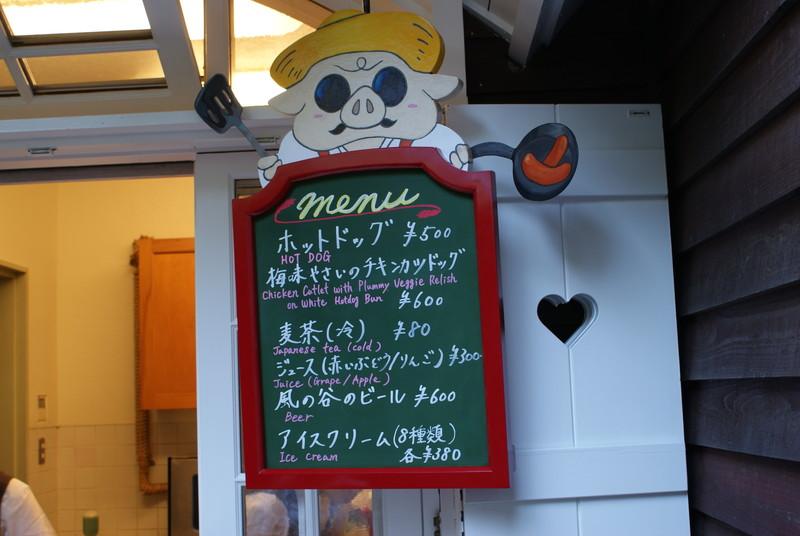 menu
ホットドッグ ¥500
HOT DOG
梅味やさいのチキンカツドッグ
Chicken Cutlet with Plummy Veggie Relish
on White Hotdog Bun ¥600
麦茶(冷) ¥80
Japanese tea (cold)
ジュース(赤いぶどう/りんご) ¥300
Juice (Grape/Apple)
風の谷のビール ¥600
Beer
アイスクリーム(8種類)
Ice cream 各¥380